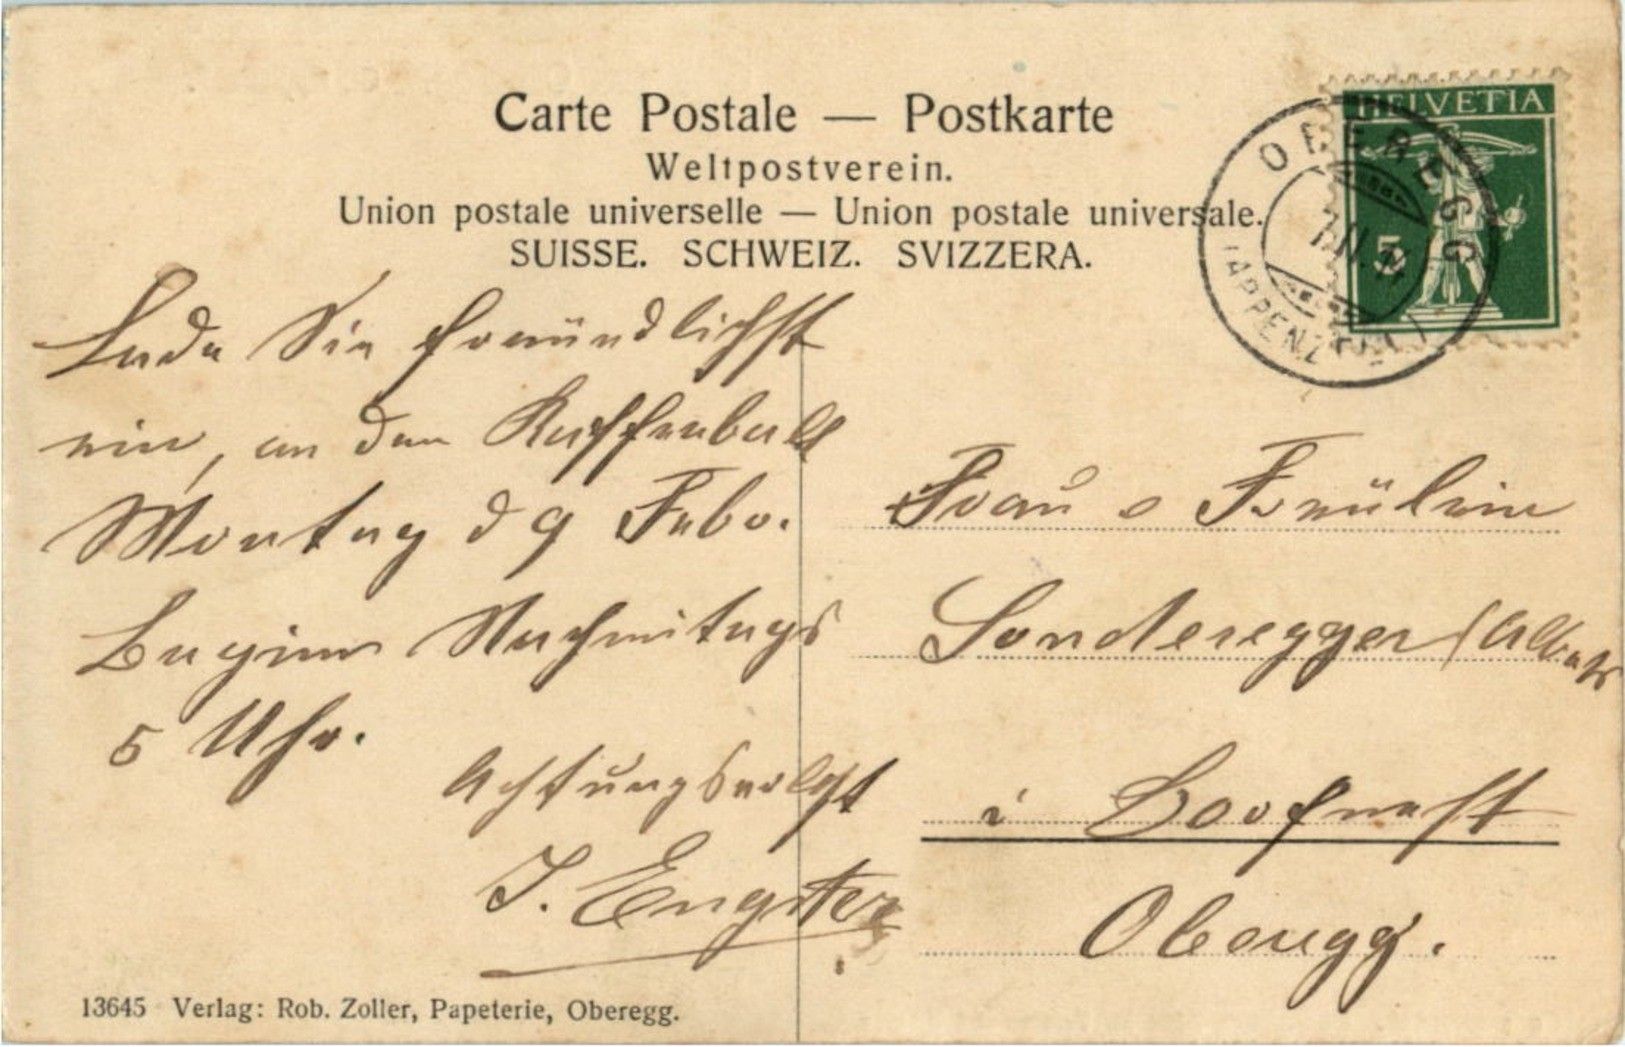 Carte Postale — Postkarte
Weltpostverein.
Union postale universelle — Union postale universale.
SUISSE. SCHWEIZ. SVIZZERA.
HELVETIA
5
OBEREGG
(APPENZELL)
Lade Sie freundlichst
ein, an den Kaffeeball
Montag d 9 Febr.
Beginn Nachmitags
5 Uhr.
Achtungsvollst
J. Engster
Frau & Fräulein
Sonderegger
i Dorf
Oberegg.
13645 Verlag: Rob. Zoller, Papeterie, Oberegg.